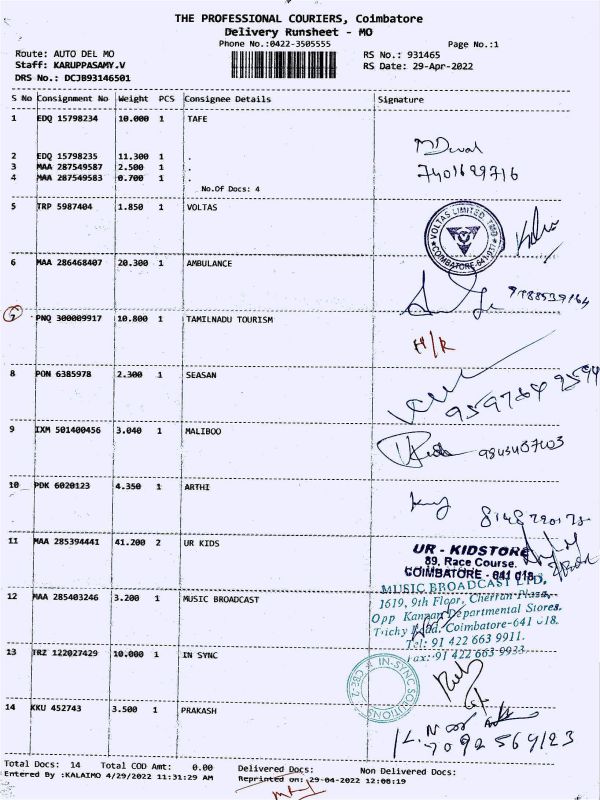 THE PROFESSIONAL COURIERS, Coimbatore
Delivery Runsheet - MO
Phone No.:0422-3505555
Page No.:1
Route: AUTO DEL MO
Staff: KARUPPASAMY.V
DRS No.: DCJB93146501
RS No.: 931465
RS Date: 29-Apr-2022
S No Consignment No Weight PCS Consignee Details Signature
1 EDQ 15798234 10.000 1 TAFE
2 EDQ 15798235 11.300 1 .
3 MAA 287549587 2.500 1 .
4 MAA 287549583 0.700 1 .
No.Of Docs: 4
7401629716
5 TRP 5987404 1.850 1 VOLTAS
VOLTAS LIMITED
COIMBATORE-641
6 MAA 286468407 20.300 1 AMBULANCE
7 PNQ 300009917 10.800 1 TAMILNADU TOURISM
H/R
8 PON 6385978 2.300 1 SEASAN
9597649594
9 IXM 501400456 3.040 1 MALIBOO
10 PDK 6020123 4.350 1 ARTHI
11 MAA 285394441 41.200 2 UR KIDS
UR - KIDSTORE
89, Race Course,
COIMBATORE - 641 018.
12 MAA 285403246 3.200 1 MUSIC BROADCAST
MUSIC BROADCAST LTD,
1619, 9th Floor, Cherran Plaza,
Opp Kannan Departmental Stores,
Trichy Road, Coimbatore-641 018.
Tel: 91 422 663 9911.
Fax: 91 422 663 9933.
13 TRZ 122027429 10.000 1 IN SYNC
IN-SYNC SOLUTIONS
CBE-2
14 KKU 452743 3.500 1 PRAKASH
7092569123
Total Docs: 14 Total COD Amt: 0.00 Delivered Docs: Non Delivered Docs:
Entered By :KALAIMO 4/29/2022 11:31:29 AM Reprinted on: 29-04-2022 12:08:19